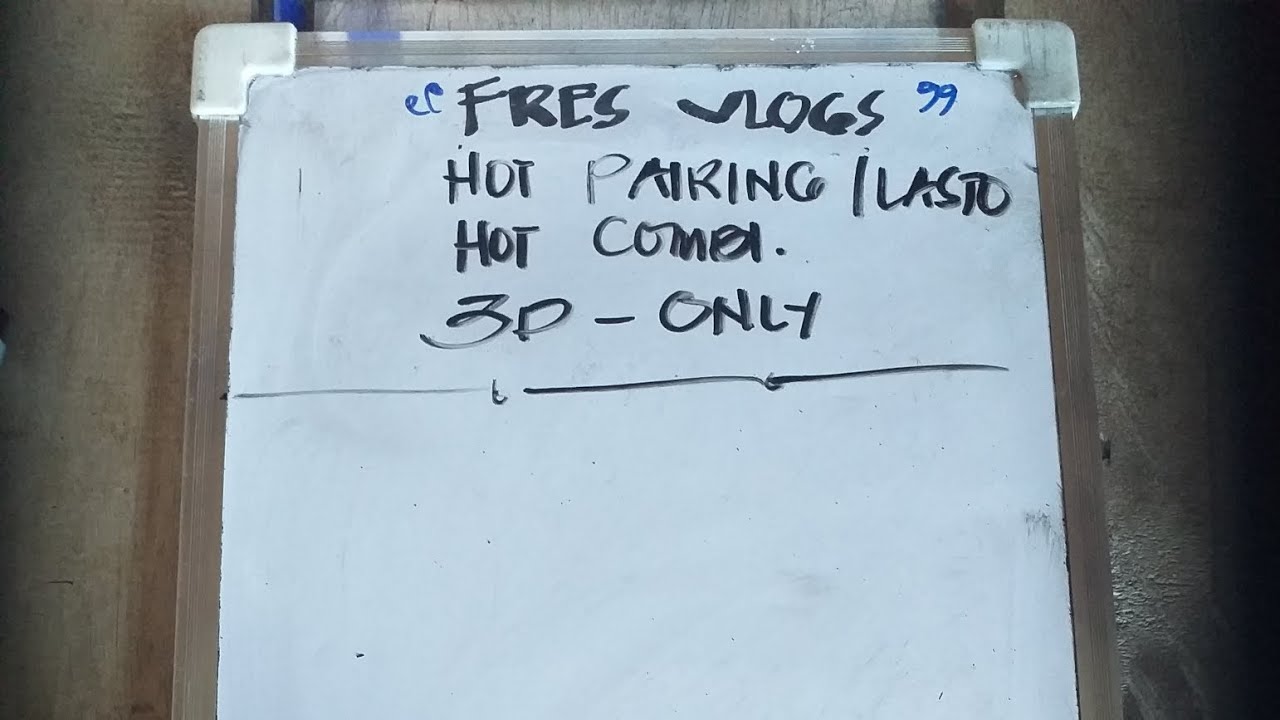 "FRES VLOGS"
HOT PAIRING / LASTO
HOT COMBI.
3D - ONLY